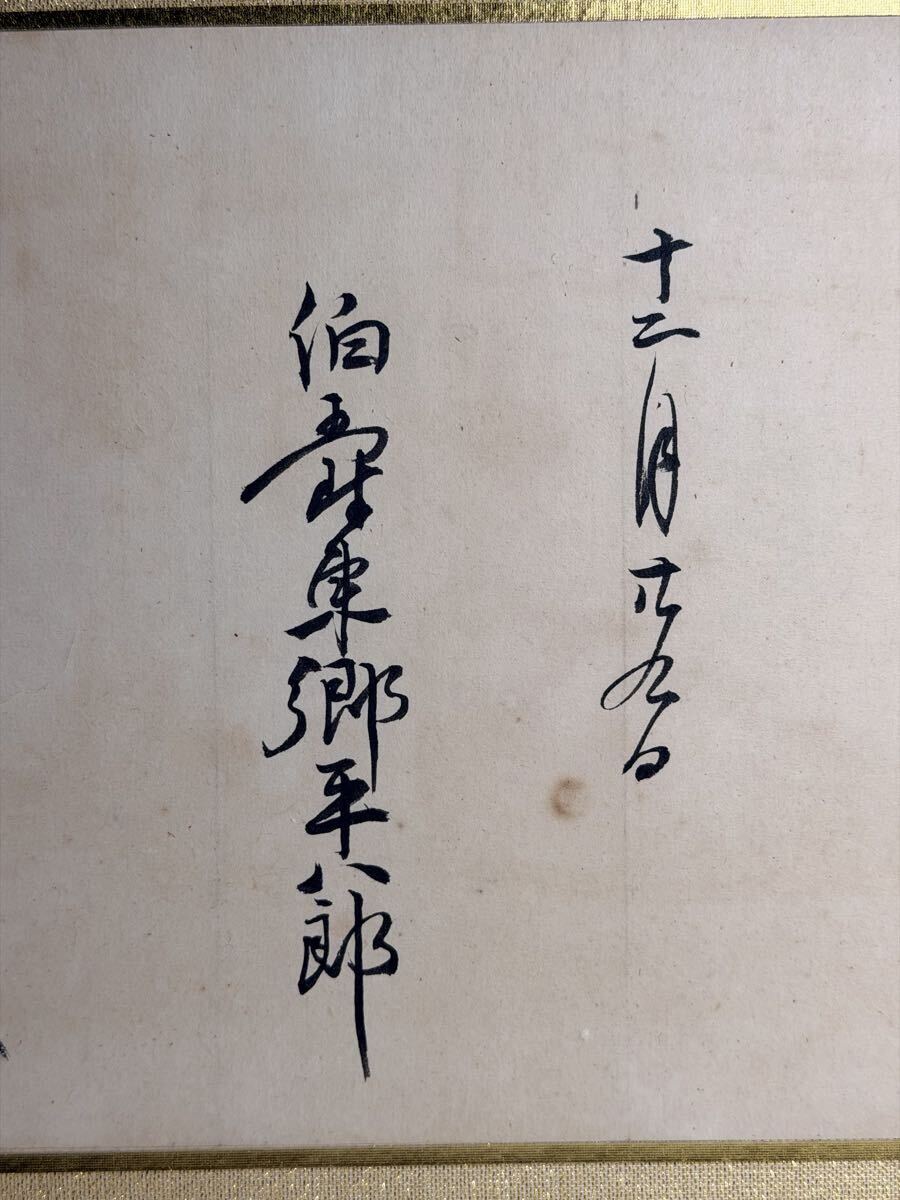 十二月廿九日
伯爵東郷平八郎